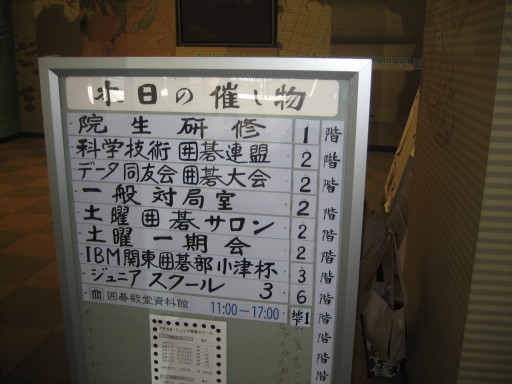 本日の催し物
院生研修 1階
科学技術囲碁連盟 2階
データ同友会囲碁大会 2階
一般対局室 2階
土曜囲碁サロン 2階
土曜一期会 2階
IBM関東囲碁部小津杯 3階
ジュニアスクール 3 6階
囲碁殿堂資料館 11:00–17:00 地1階
階
階